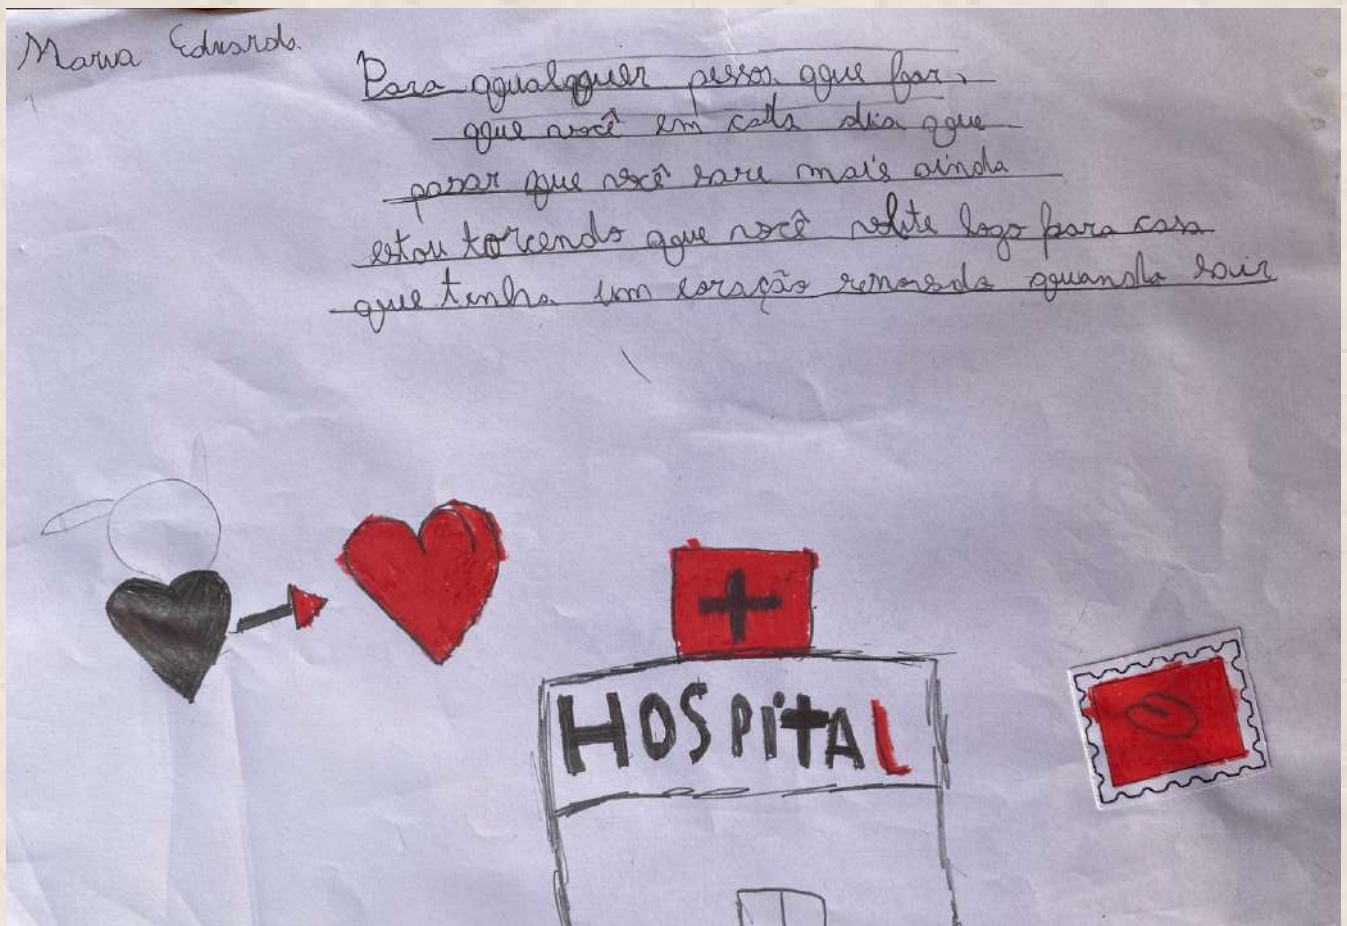 Maria Eduarda.
Para qqualqquer pessoa qque for,
qque você em cada dia qque
pasar que você sare mais ainda
estou torcendo qque você volte logo para casa
que tenha um coração renovado qquando sair
HOSPITAL